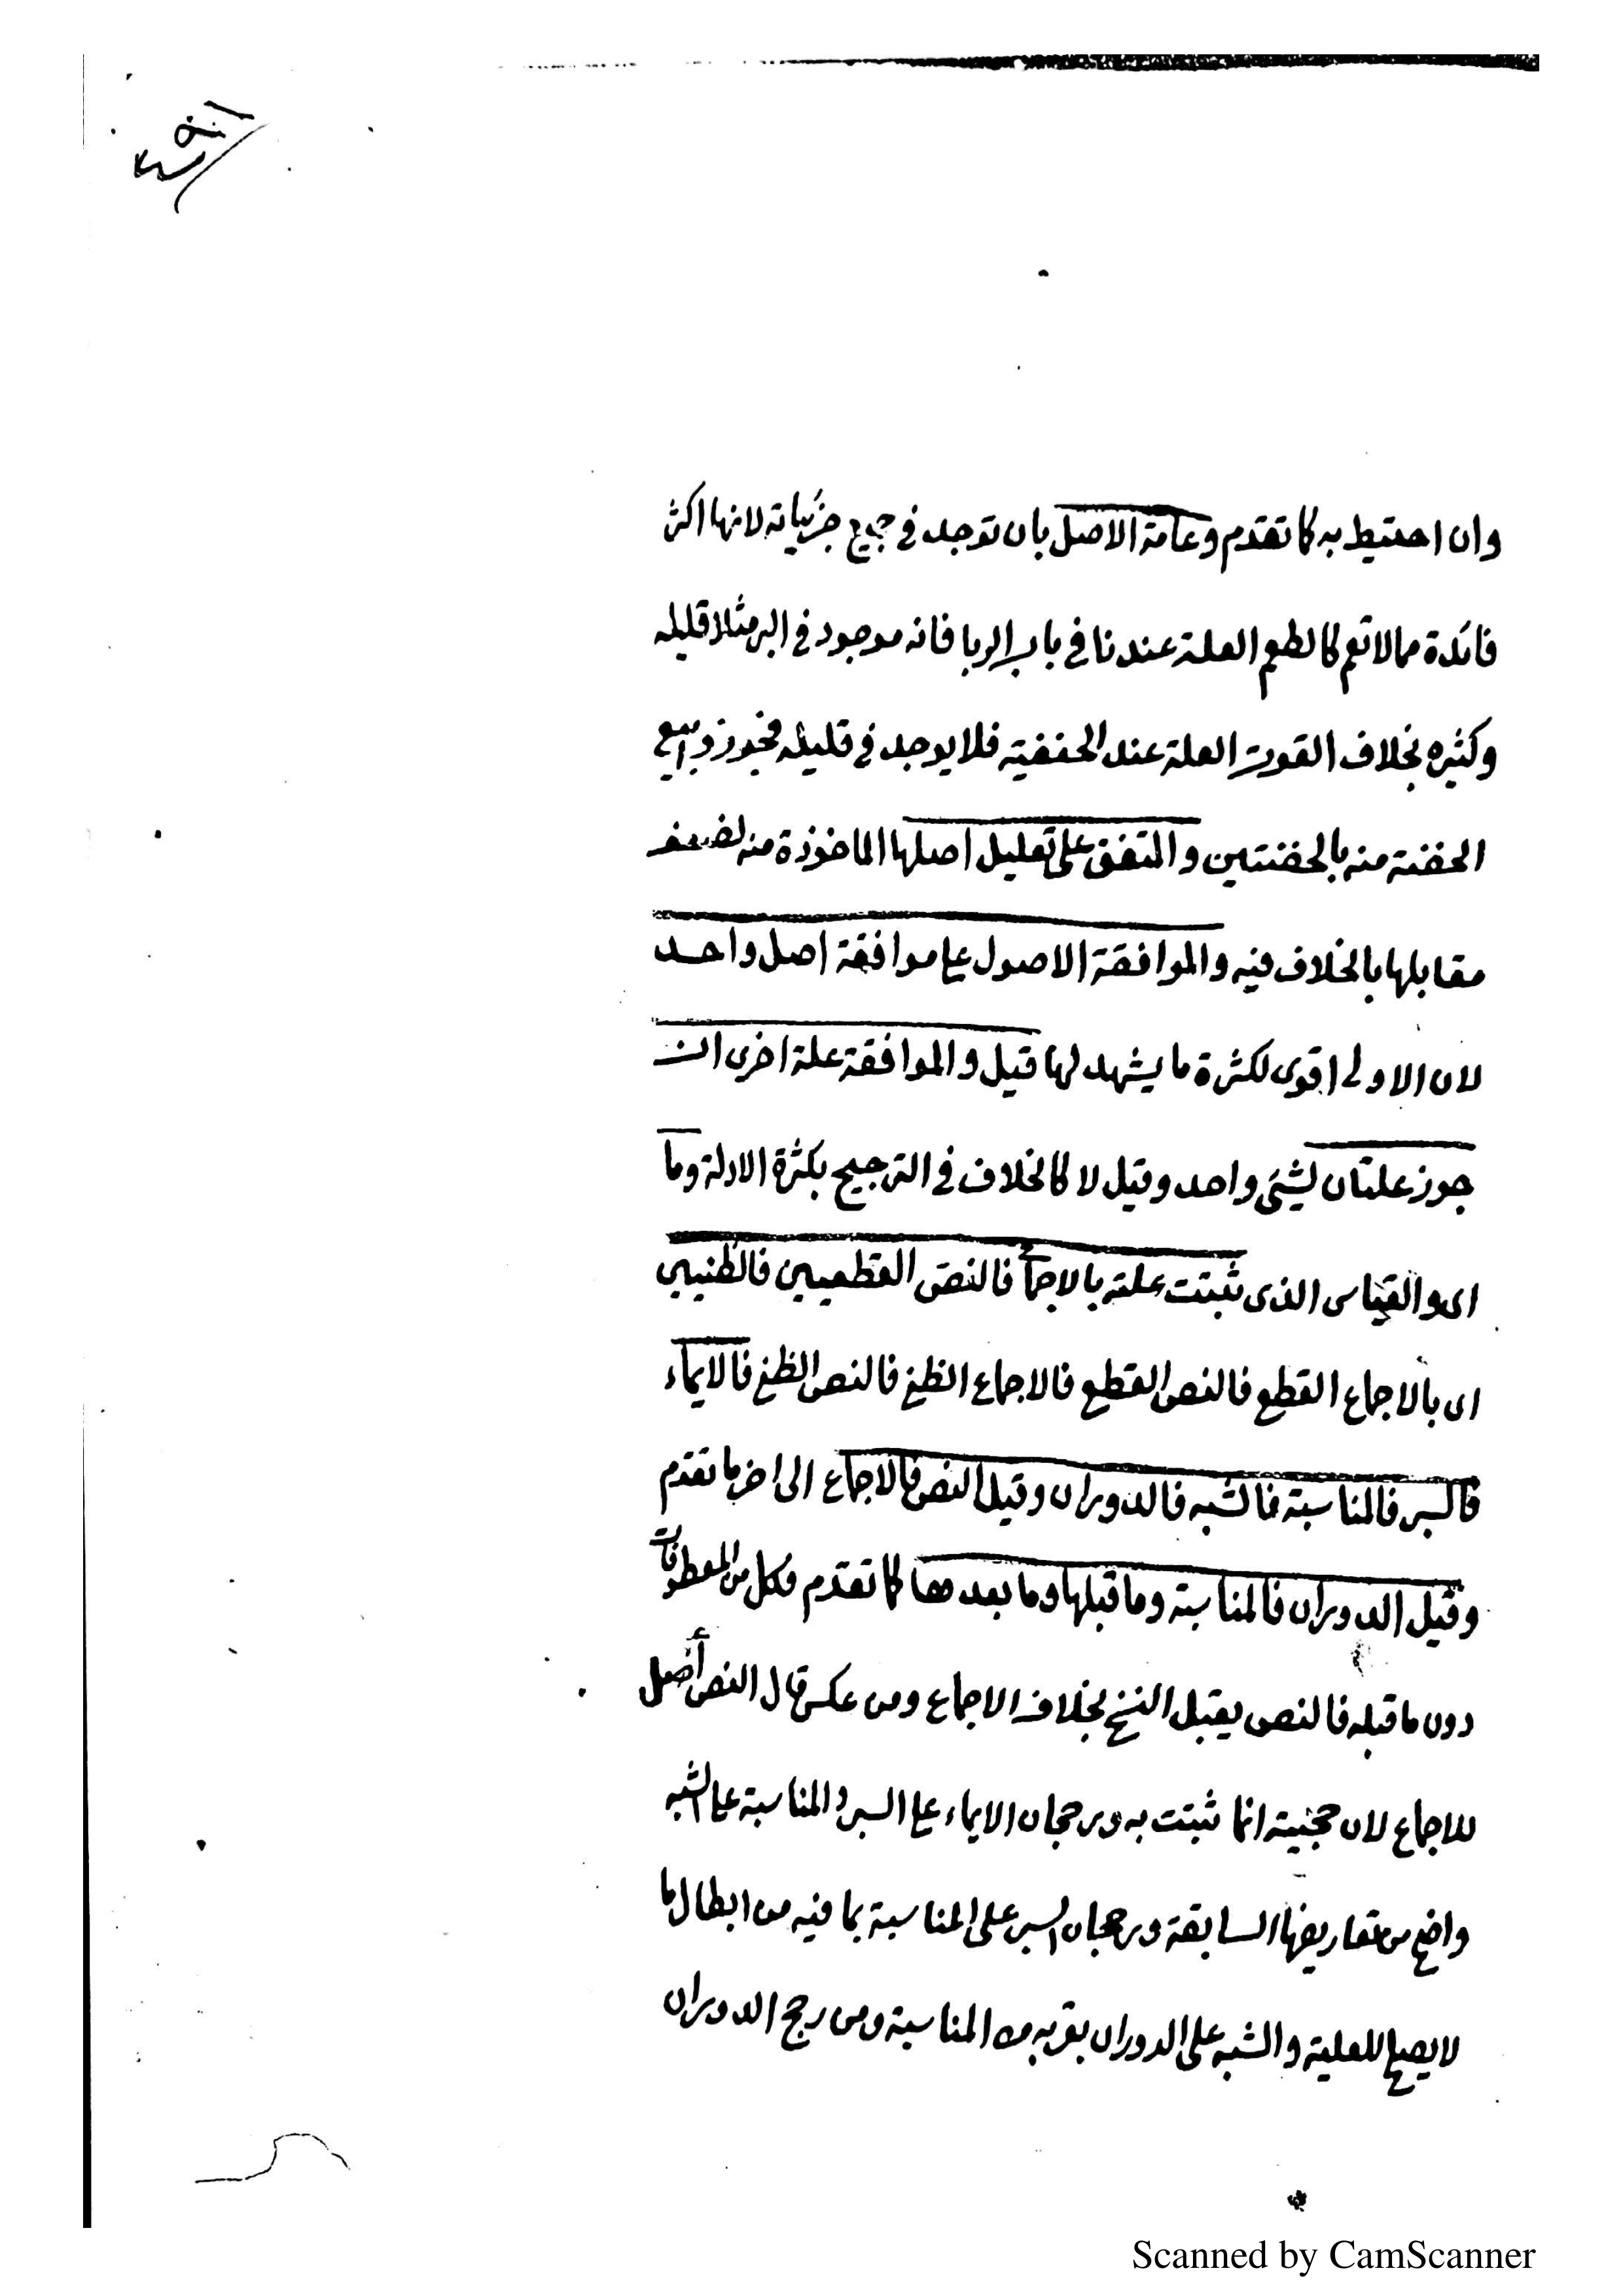 وان احتيط به كما تقدم وعامة الاصل بان توجد في جميع جزئياته لانها اكثر
فائدة مما لا تعم كالطعم العلة عندنا في باب الربا فانه موجود في البر مثلا قليله
وكثيره بخلاف القوت العلة عند الحنفية فلا يوجد في قليله فيجوز بيع
الحفنة منه بالحفنتين والمتفق على تعليل اصلها الماخوذة منه لضعف
مقابلها بالخلاف فيه والموافقة الاصول على موافقة اصل واحد
لان الاولى اقوى لكثرة ما يشهد لها قيل والموافقة علة اخرى ان
جوز علتان لشيئ واحد وقيل لا كالخلاف في الترجيح بكثرة الادلة وما
اى والقياس الذى ثبتت علته بالاجماع فالنص القطعيين فالظنيين
اى بالاجماع القطعي فالنص القطعي فالاجماع الظني فالنص الظني فالايماء
فالسبر فالمناسبة فالشبه فالدوران وقيل النص فالاجماع الى اخر ما تقدم
وقيل الدوران فالمناسبة وما قبلها وما بعدها كما تقدم فكل من المعطوفات
دون ما قبله فالنص يقبل النسخ بخلاف الاجماع ومن عكس قال النص أصل
للاجماع لان حجيته انما ثبتت به ورجحان الايماء على السبر والمناسبة على الشبه
واضح من تعاريفها السابقة ورجحان السبر على المناسبة بما فيه من ابطال ما
لا يصلح للعلية والشبه على الدوران بقربه من المناسبة ومن رجح الدوران
Scanned by CamScanner